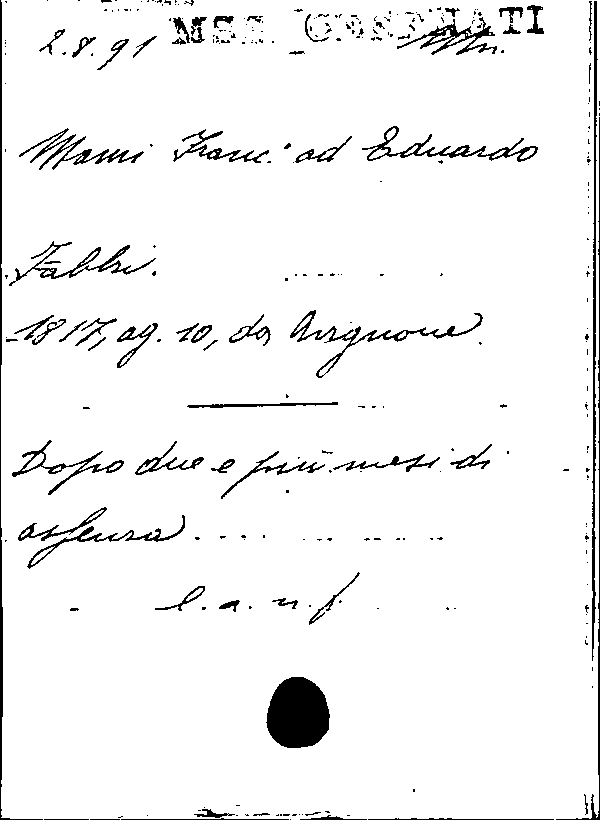 2.8.91 MSS. CESENATI
Mami Franc.º ad Eduardo
Fabbri.
1817, ag. 10, da Avignone.
Dopo due e più mesi di
assenza . . . . . . . . . . .
l. a. n. f.